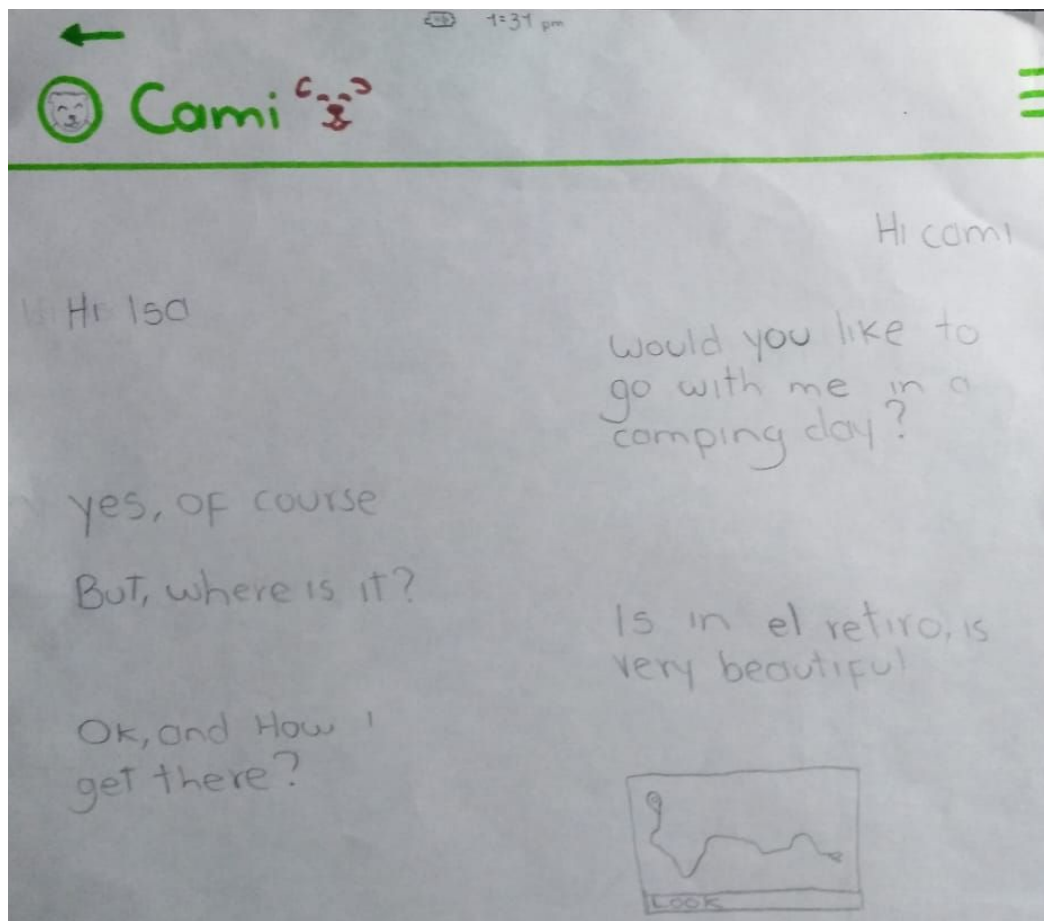 1:31 pm
Cami
Hi cami
Hi Isa
Would you like to
go with me in a
camping day?
yes, of course
But, where is it?
Is in el retiro, is
very beautiful
Ok, and How I
get there?
LOOK